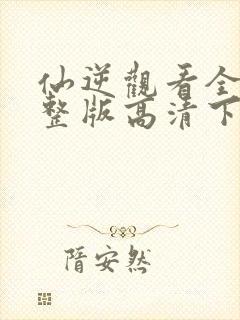 仙逆觀看全
整版高清下
隋安然